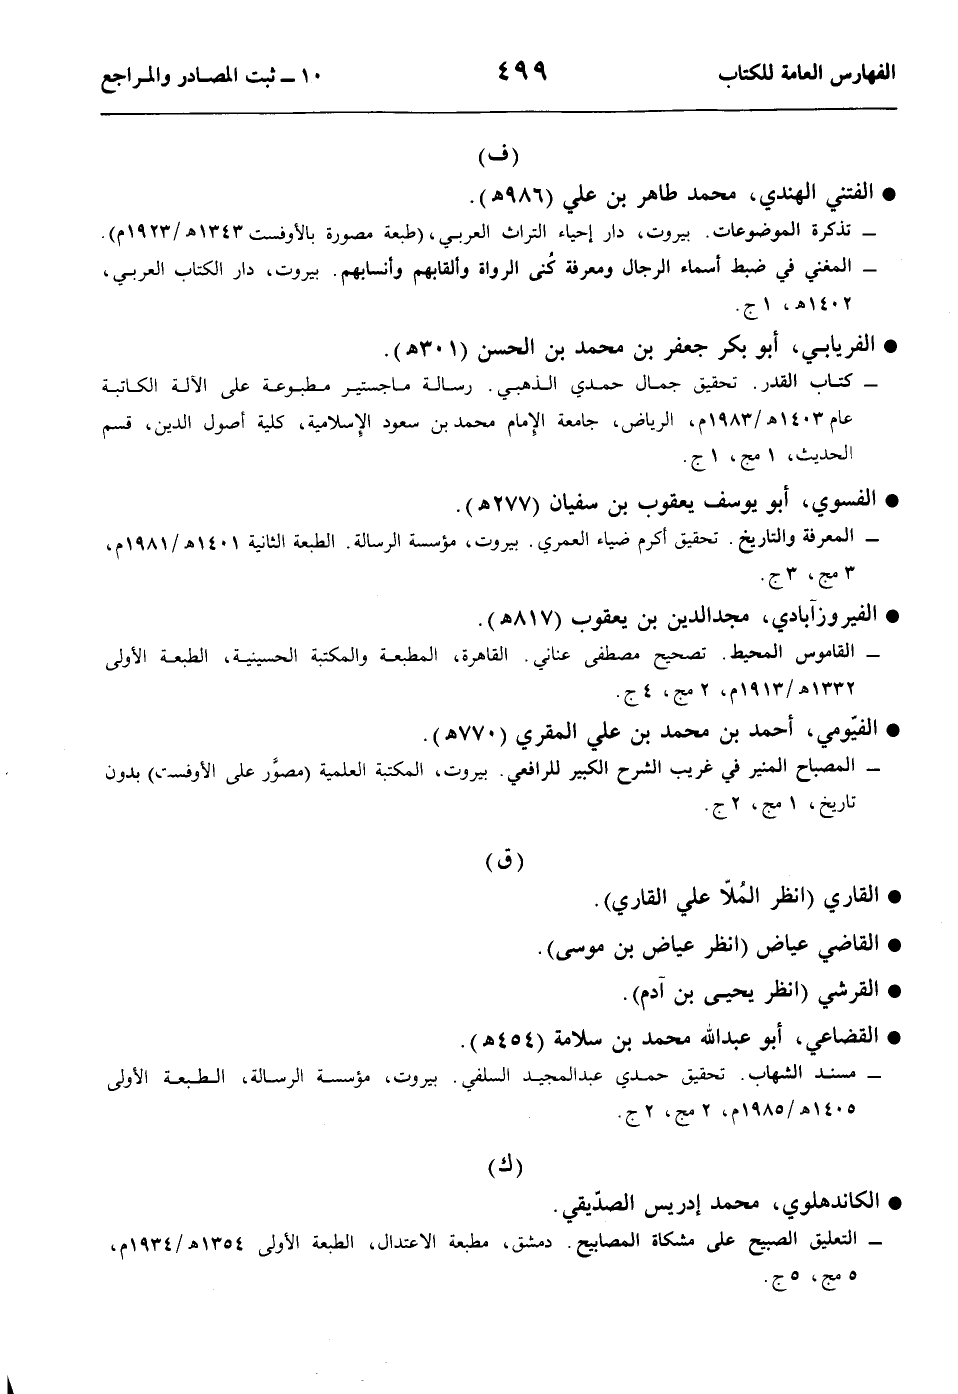 الفهارس العامة للكتاب ٤٩٩ ١٠ ــ ثبت المصادر والمراجع
(ف)
● الفتني الهندي، محمد طاهر بن علي (٩٨٦هـ).
ــ تذكرة الموضوعات. بيروت، دار إحياء التراث العربي، (طبعة مصورة بالأوفست ١٣٤٣هـ/١٩٢٣م).
ــ المغني في ضبط أسماء الرجال ومعرفة كُنى الرواة وألقابهم وأنسابهم. بيروت، دار الكتاب العربي،
١٤٠٢هـ، ١ ج.
● الفريابي، أبو بكر جعفر بن محمد بن الحسن (٣٠١هـ).
ــ كتاب القدر. تحقيق جمال حمدي الذهبي. رسالة ماجستير مطبوعة على الآلة الكاتبة
عام ١٤٠٣هـ/١٩٨٣م، الرياض، جامعة الإمام محمد بن سعود الإسلامية، كلية أصول الدين، قسم
الحديث، ١ مج، ١ ج.
● الفسوي، أبو يوسف يعقوب بن سفيان (٢٧٧هـ).
ــ المعرفة والتاريخ. تحقيق أكرم ضياء العمري. بيروت، مؤسسة الرسالة. الطبعة الثانية ١٤٠١هـ/١٩٨١م،
٣ مج، ٣ ج.
● الفيروزآبادي، مجدالدين بن يعقوب (٨١٧هـ).
ــ القاموس المحيط. تصحيح مصطفى عناني. القاهرة، المطبعة والمكتبة الحسينية، الطبعة الأولى
١٣٣٢هـ/١٩١٣م، ٢ مج، ٤ ج.
● الفيّومي، أحمد بن محمد بن علي المقري (٧٧٠هـ).
ــ المصباح المنير في غريب الشرح الكبير للرافعي. بيروت، المكتبة العلمية (مصوَّر على الأوفست) بدون
تاريخ، ١ مج، ٢ ج.
(ق)
● القاري (انظر المُلاّ علي القاري).
● القاضي عياض (انظر عياض بن موسى).
● القرشي (انظر يحيى بن آدم).
● القضاعي، أبو عبدالله محمد بن سلامة (٤٥٤هـ).
ــ مسند الشهاب. تحقيق حمدي عبدالمجيد السلفي. بيروت، مؤسسة الرسالة، الطبعة الأولى
١٤٠٥هـ/١٩٨٥م، ٢ مج، ٢ ج.
(ك)
● الكاندهلوي، محمد إدريس الصدّيقي.
ــ التعليق الصبيح على مشكاة المصابيح. دمشق، مطبعة الاعتدال، الطبعة الأولى ١٣٥٤هـ/١٩٣٤م،
٥ مج، ٥ ج.